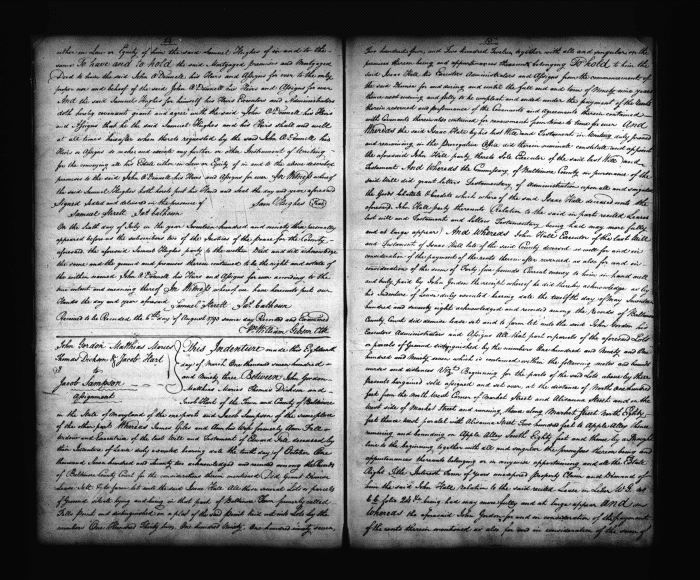 either in Law or Equity of him the said Samuel Hughes of in and to the
same To have and to hold the said Mortgaged premises and Mortgaged
Deed to him the said John O'Donnell his Heirs and Assigns for ever to the only
proper use and behoof of the said John O'Donnell his Heirs and Assigns for ever
And the said Samuel Hughes for himself his Heirs Executors and Administrators
doth hereby covenant grant and agree with the said John O'Donnell his
Heirs and Assigns that he the said Samuel Hughes and his Heirs shall and will
at all times hereafter when thereto required by the said John O'Donnell his
Heirs or Assigns make and execute any further or other Instrument of Writing
for the conveying all his Estate either in Law or Equity of in and to the above described
premises to the said John O'Donnell his Heirs and Assigns for ever In Witness
the said Samuel Hughes hath hereto put his Hand and Seal the day and year aforesaid
Signed Sealed and delivered in the presence of Sam Hughes (Seal)
Samuel Sterett Jas Calhoun
On the day of July in the year Seventeen hundred and ninety three personally
appeared before us the subscribers two of the Justices of the peace for the County
aforesaid the aforesaid Samuel Hughes party to the within Deed and did acknowledge
the same and the ground and premises therein contained to be the right and estate of
the within named John O'Donnell his Heirs and Assigns for ever according to the
true intent and meaning thereof In Witness whereof we have hereunto put our
Hands the day and year aforesaid Samuel Sterett Jas Calhoun
Received to be Recorded the 6th day of August 1793 same day Recorded and Examined
Pr William Gibson Clk
John Gordon Matthias Maries
Thomas Dickson & Jacob Hart
to
Jacob Sampson
Assignment
This Indenture made this Eighteenth
day of March One thousand seven hundred
and Ninety three Between John Gordon
Matthias Maries Thomas Dickson and
Jacob Hart of the Town and County of Baltimore
in the State of Maryland of the one part and Jacob Sampson of the same place
of the other part Whereas James Giles and Ann his Wife formerly Ann Fell
and Executrix of the last Will and Testament of Edward Fell deceased by
their Indenture of Lease duly executed bearing date the tenth day of October One
thousand seven hundred and seventy two acknowledged and recorded among the Records
of Baltimore County Court for the considerations therein mentioned Did Grant Demise
Lease Sett & to farm let unto the said Isaac Hall All those several Lots or parcels
of Ground situate lying and being in that part of Baltimore Town formerly called
Fells point and distinguished on a plat of the said point laid out into Lots by the
numbers One Hundred Thirty two, One hundred Ninety, One hundred ninety seven,
Two hundred four, and Two hundred Twelve, together with all and singular the
premises thereon being and appurtenances thereunto belonging To hold to him the
said Isaac Hall his Executors Administrators and Assigns from the commencement of
the said Term for and during and until the full end and term of Ninety nine years
thence next ensuing and fully to be complete and ended under the payment of the Rents
therein reserved and performance of the Covenants and Agreements therein contained
with Covenants therein also contained for renewment from time to time forever And
Whereas the said Isaac Hall by his last Will and Testament in Writing duly proved
and remaining in the Prerogative Office did therein nominate constitute and appoint
the aforesaid John Hall party hereto Sole Executor of the said last Will and
Testament And Whereas the Company of Baltimore County in pursuance of the
said Will did grant letters Testamentary, of Administration upon all and singular
the Goods Chattels & Credits which were of the said Isaac Hall deceased unto the
aforesaid John Hall party thereunto (Relation to the said in parts recited Leases
last will and Testament and letters Testamentary being had may more fully
and at large appear) And Whereas John Hall Executor of the last Will
and Testament of Isaac Hall late of the said County deceased as well for and in
consideration of the payment of the rents therein after reserved, as also for and in
consideration of the sum of Forty five pounds Current money to him in hand well
and truly paid by John Gordon the receipt whereof he did thereby acknowledge as by
his Indenture of Lease duly executed bearing date the twelfth day of May Seventeen
hundred and seventy eight acknowledged and recorded among the Records of Baltimore
County Court did demise lease set and to farm let unto the said John Gordon his
Executors Administrators and Assigns All that part or parcels of the aforesaid Lots
or parcels of Ground distinguished by the numbers One hundred and Ninety and One
hundred and Ninety seven which is contained within the following metes and bounds
courses and distances Viz Beginning for the parts of the said Lots whereof by these
presents bargained sold assigned and set over, at the distance of North One hundred
feet from the north west Corner of Market Street and Alisanna Street and on the
west side of Market Street and running thence along Market Street North Fifty
feet thence west parallel with Alisanna Street Two hundred feet to Apple Alley thence
running and bounding on Apple Alley South Eighty feet and thence by a straight
line to the beginning, together with all and singular the premises thereon being and
appurtenances thereunto belonging or in anywise appertaining and all the Estate
Right Title Interest Term of years unexpired Property Claim and Demand of
him the said John Hall (Relation to the said recited Lease in Liber W.G. No.
folio being had may more fully and at large appear And and
Whereas the aforesaid John Gordon, for and in consideration of the payment
of the rents therein mentioned as also for and in consideration of the sum of